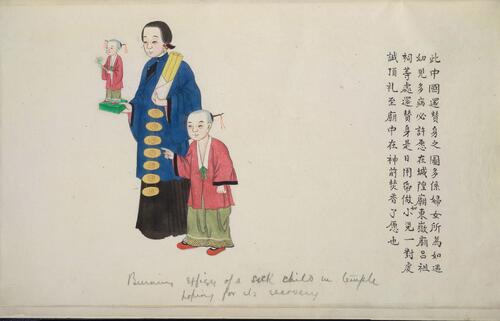 此中國還替身之圖多係婦女所為如遇
幼兒多病必許愿在城隍廟東嶽廟呂祖
祠等處還替身是日用帋做如小兒一對虔
誠頂礼至廟中在神前焚香了愿也
Burning effigy of a sick child in temple
hoping for its recovery